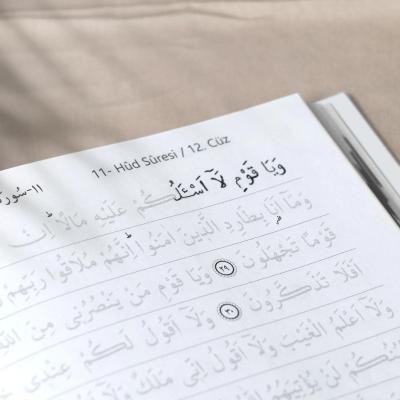 11- Hûd Sûresi / 12. Cüz
١١-سُورَة
وَيَا قَوْمِ لَٓا اَسْـَٔلُكُمْ عَلَيْهِ مَالًاۜ اِنْ
وَمَٓا اَنَا۬ بِطَارِدِ الَّذ۪ينَ اٰمَنُواۜ اِنَّهُمْ مُلَاقُوا رَبِّهِمْ
قَوْمًا تَجْهَلُونَ ﴿٢٩﴾ وَيَا قَوْمِ مَنْ يَنْصُرُن۪ي مِنَ اللّٰهِ
اَفَلَا تَذَكَّرُونَ ﴿٣٠﴾ وَلَٓا اَقُولُ لَكُمْ عِنْد۪ي
وَلَٓا اَعْلَمُ الْغَيْبَ وَلَٓا اَقُولُ اِنّ۪ي مَلَكٌ وَلَٓا
لَنْ يُؤْتِيَهُمُ